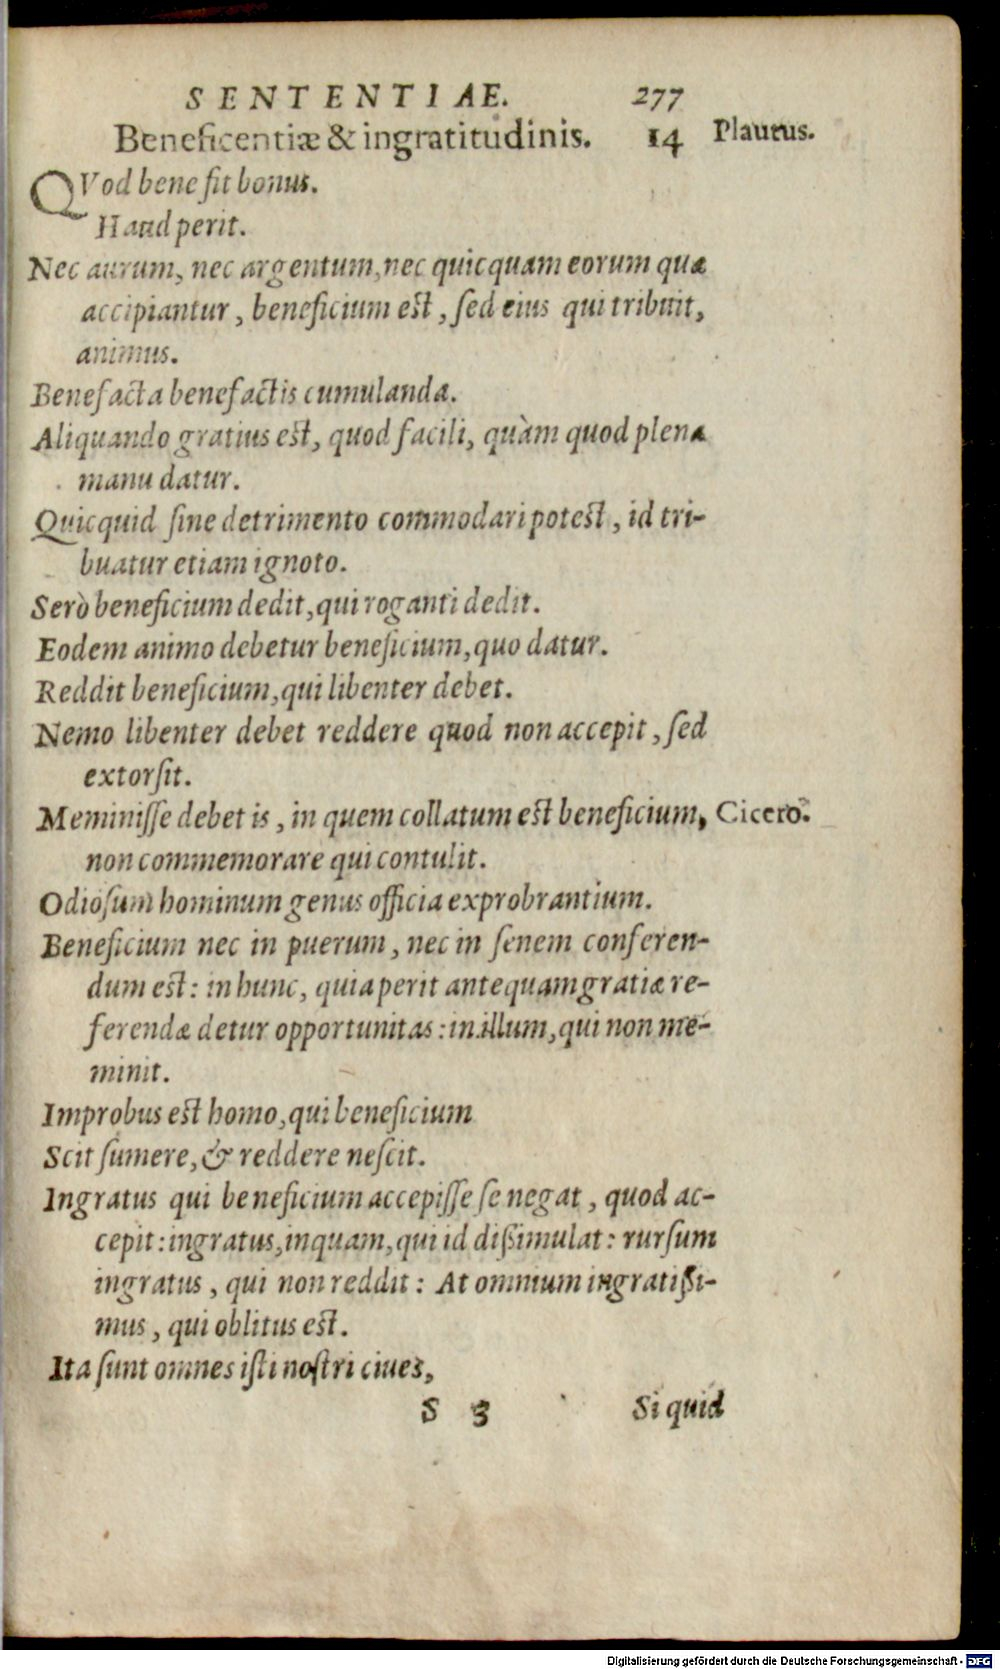 SENTENTIAE. 277
Beneficentiæ & ingratitudinis. 14 Plautus.
QVod bene fit bonus.
Haud perit.
Nec aurum, nec argentum, nec quicquam eorum quæ
accipiantur, beneficium est, sed eius qui tribuit,
animus.
Benefacta benefactis cumulanda.
Aliquando gratius est, quod facili, quàm quod plena
manu datur.
Quicquid sine detrimento commodari potest, id tri-
buatur etiam ignoto.
Serò beneficium dedit, qui roganti dedit.
Eodem animo debetur beneficium, quo datur.
Reddit beneficium, qui libenter debet.
Nemo libenter debet reddere quod non accepit, sed
extorsit.
Meminisse debet is, in quem collatum est beneficium, Cicero.
non commemorare qui contulit.
Odiosum hominum genus officia exprobrantium.
Beneficium nec in puerum, nec in senem conferen-
dum est: in hunc, quia perit antequam gratiæ re-
ferendæ detur opportunitas: in illum, qui non me-
minit.
Improbus est homo, qui beneficium
Scit sumere, & reddere nescit.
Ingratus qui beneficium accepisse se negat, quod ac-
cepit: ingratus, inquam, qui id dißimulat: rursum
ingratus, qui non reddit: At omnium ingratißi-
mus, qui oblitus est.
Ita sunt omnes isti nostri ciues,
S 3 Si quid
Digitalisierung gefördert durch die Deutsche Forschungsgemeinschaft - DFG